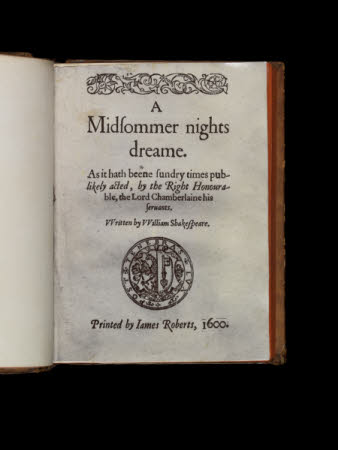 A
Midſommer nights
dreame.
As it hath beene ſundry times pub-
likely acted, by the Right Honoura-
ble, the Lord Chamberlaine his
ſeruants.
VVritten by VVilliam Shakeſpeare.
Printed by Iames Roberts, 1600.